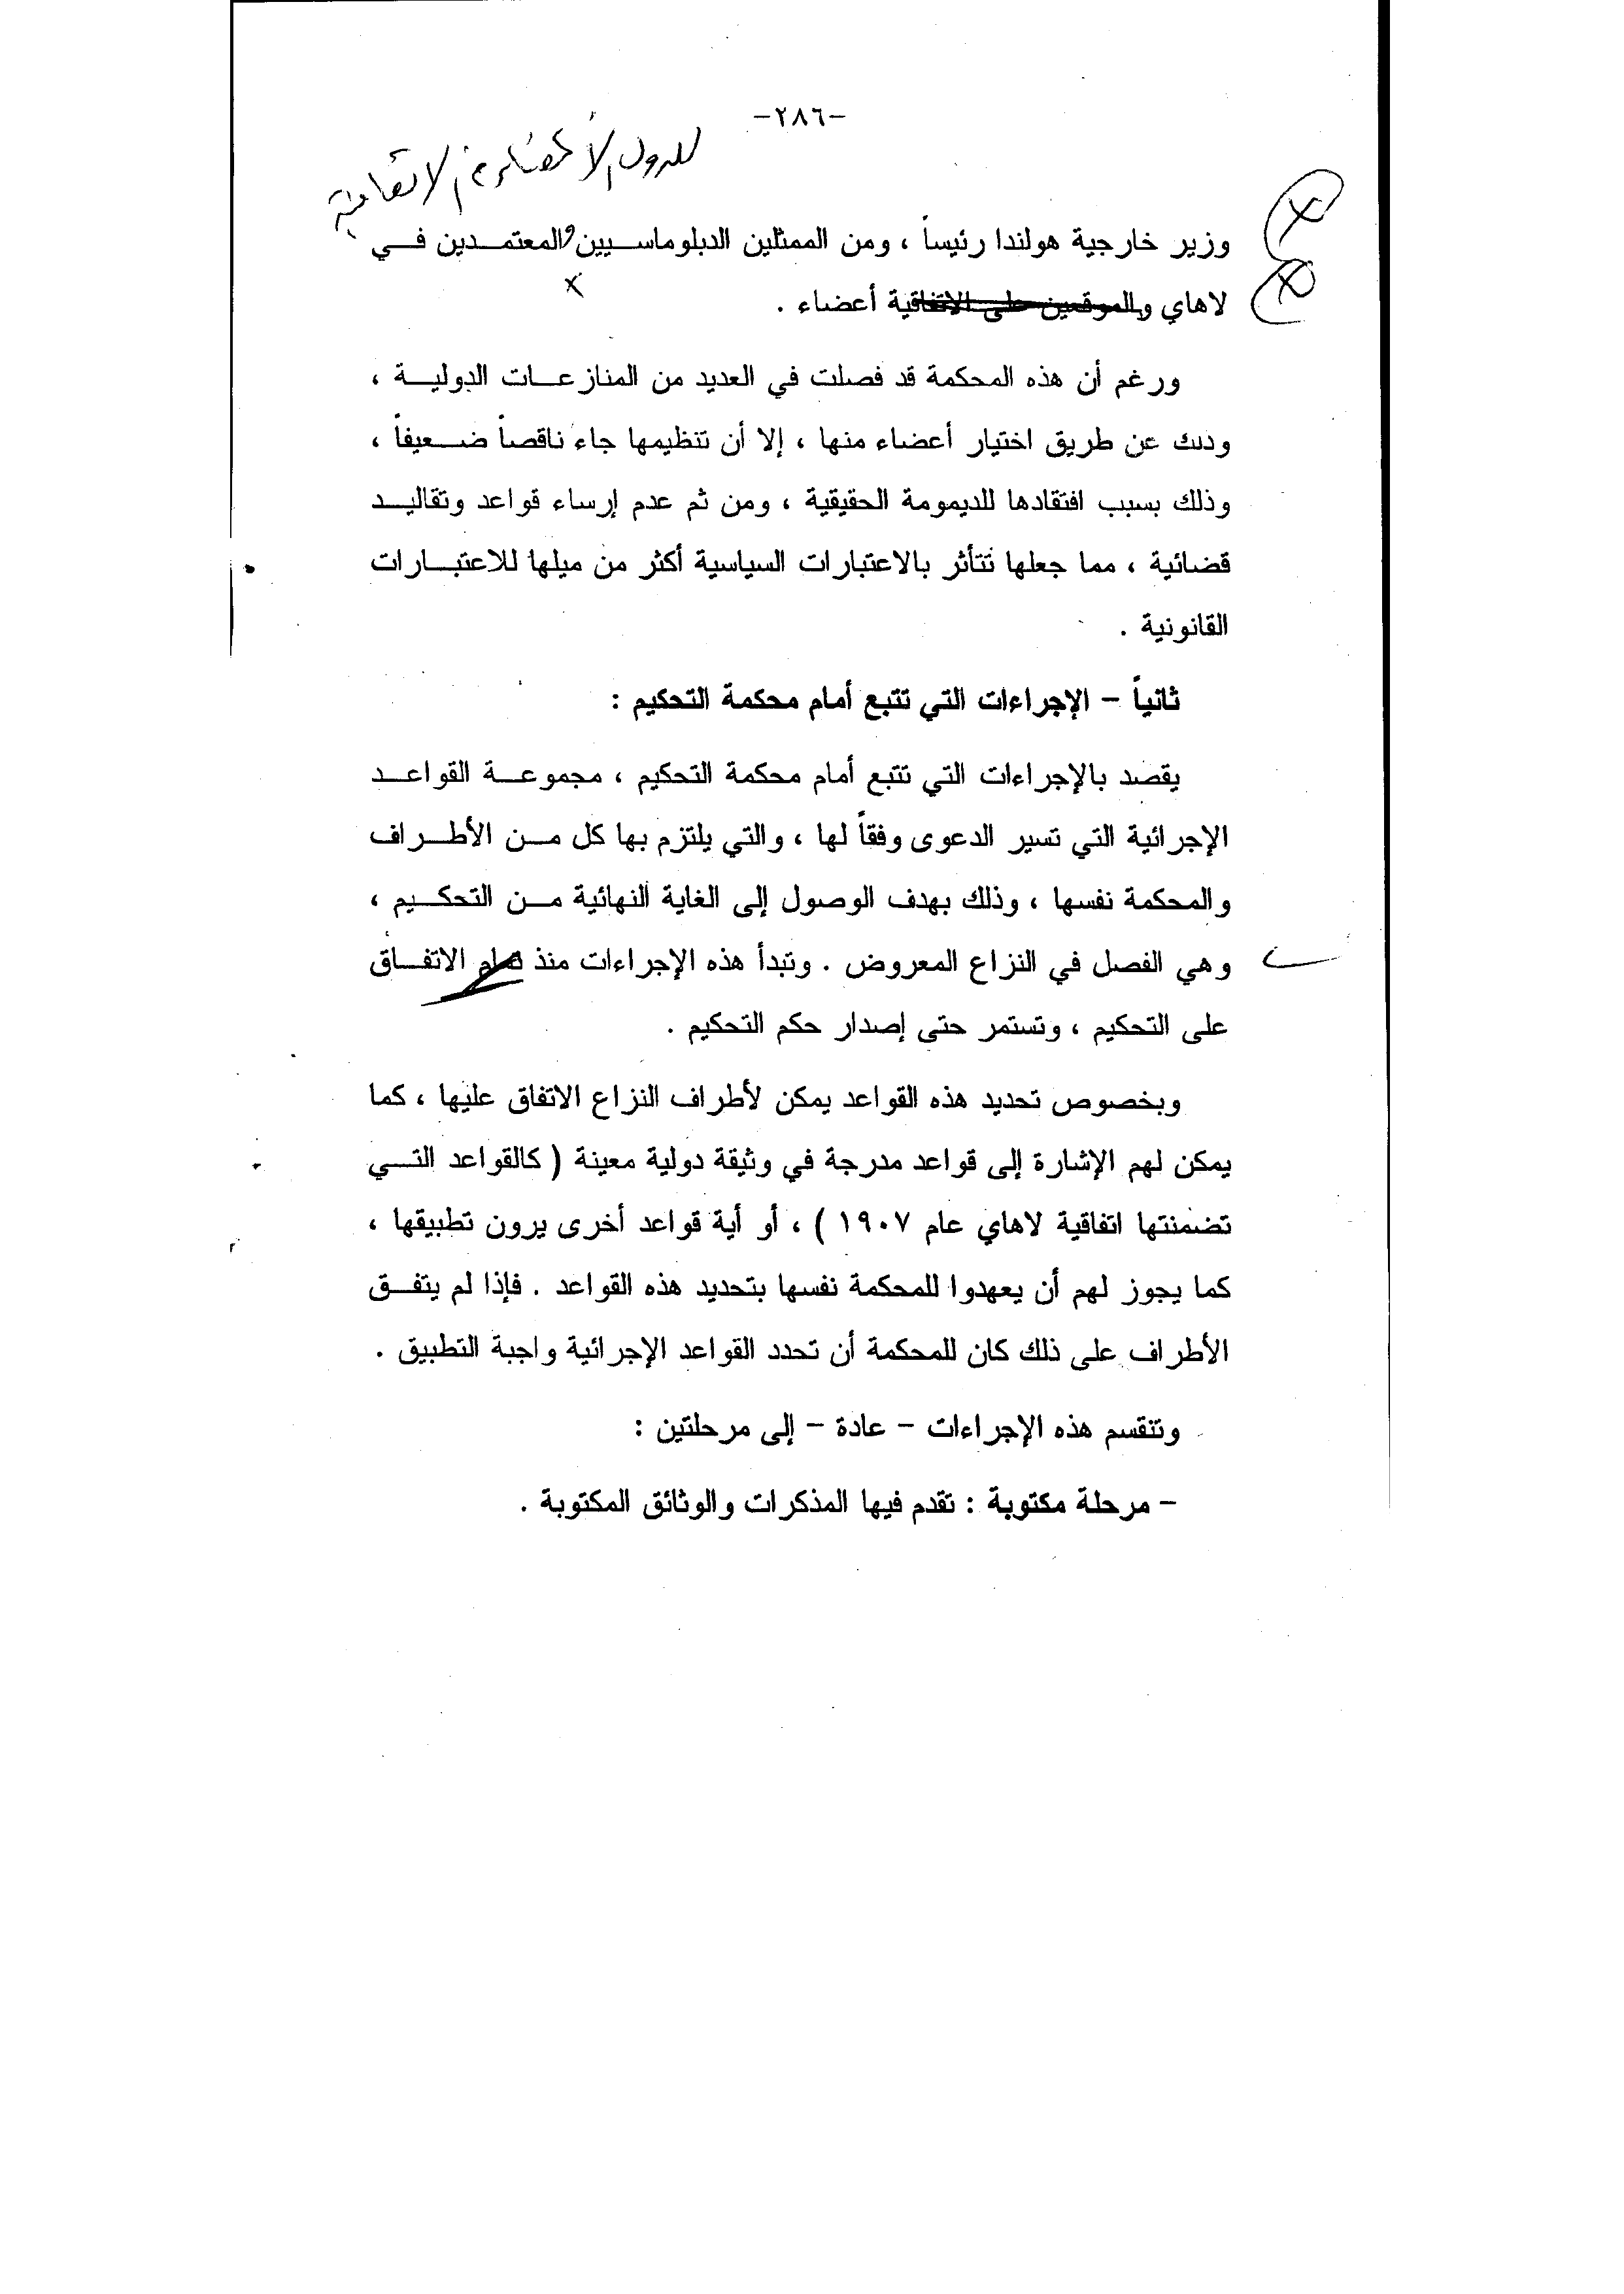 -٢٨٦-
للدول الأعضاء في الاتفاقية
وزير خارجية هولندا رئيساً ، ومن الممثلين الدبلوماسيين والمعتمدين في
لاهاي والموقعين على الاتفاقية أعضاء .
ورغم أن هذه المحكمة قد فصلت في العديد من المنازعات الدولية ،
وذلك عن طريق اختيار أعضاء منها ، إلا أن تنظيمها جاء ناقصاً ضعيفاً ،
وذلك بسبب افتقادها للديمومة الحقيقية ، ومن ثم عدم إرساء قواعد وتقاليد
قضائية ، مما جعلها تتأثر بالاعتبارات السياسية أكثر من ميلها للاعتبارات
القانونية .
ثانياً - الإجراءات التي تتبع أمام محكمة التحكيم :
يقصد بالإجراءات التي تتبع أمام محكمة التحكيم ، مجموعة القواعد
الإجرائية التي تسير الدعوى وفقاً لها ، والتي يلتزم بها كل من الأطراف
والمحكمة نفسها ، وذلك بهدف الوصول إلى الغاية النهائية من التحكيم ،
وهي الفصل في النزاع المعروض . وتبدأ هذه الإجراءات منذ الاتفاق
على التحكيم ، وتستمر حتى إصدار حكم التحكيم .
وبخصوص تحديد هذه القواعد يمكن لأطراف النزاع الاتفاق عليها ، كما
يمكن لهم الإشارة إلى قواعد مدرجة في وثيقة دولية معينة ( كالقواعد التي
تضمنتها اتفاقية لاهاي عام ١٩٠٧ ) ، أو أية قواعد أخرى يرون تطبيقها ،
كما يجوز لهم أن يعهدوا للمحكمة نفسها بتحديد هذه القواعد . فإذا لم يتفق
الأطراف على ذلك كان للمحكمة أن تحدد القواعد الإجرائية واجبة التطبيق .
وتنقسم هذه الإجراءات - عادة - إلى مرحلتين :
- مرحلة مكتوبة : تقدم فيها المذكرات والوثائق المكتوبة .